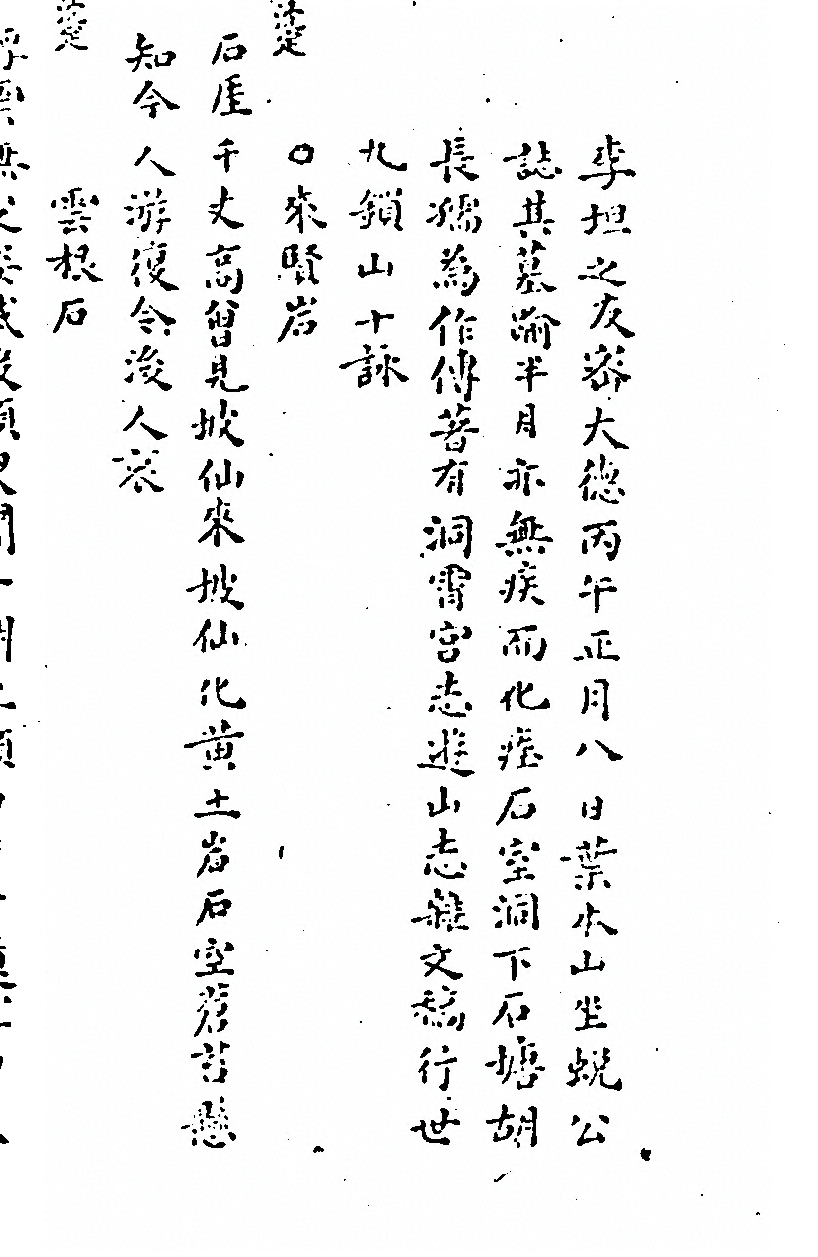 李坦之友密大德丙午正月八日葉本山坐蛻公
誌其墓逾半月亦無疾而化瘞石室洞下石塘胡
長孺為作傳著有洞霄宮志遊山志雜文稿行世
九鎖山十詠
○來賢岩
石厓千丈高曾見坡仙來坡仙化黃土岩石空蒼苔懸
知今人游復令後人哀
雲根石